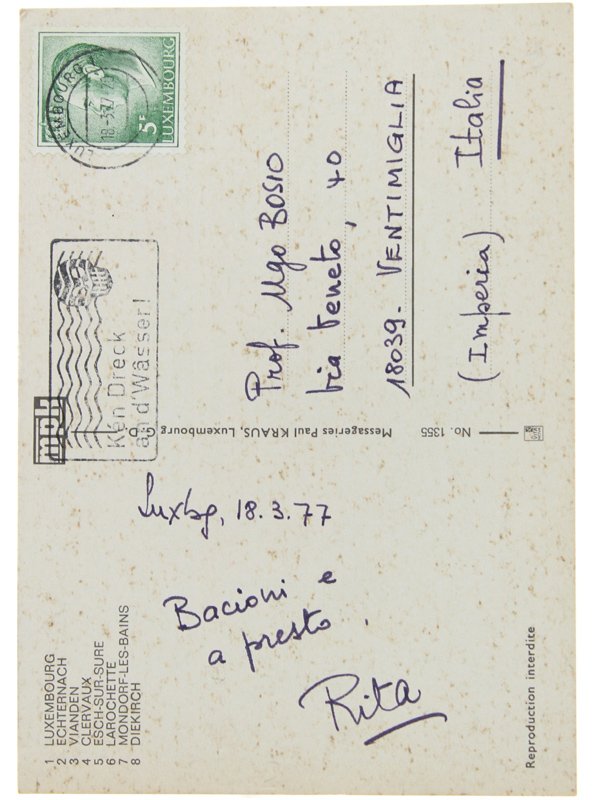 1 LUXEMBOURG
2 ECHTERNACH
3 VIANDEN
4 CLERVAUX
5 ESCH-SUR-SURE
6 LAROCHETTE
7 MONDORF-LES-BAINS
8 DIEKIRCH
Luxbg, 18.3.77
Bacioni e
a presto,
Rita
Reproduction interdite
mpk
Messageries Paul KRAUS, Luxembourg
No. 1355
Ken Dreck
an d'Wässer!
LUXEMBOURG
5F
LUXEMBOURG
Prof. Ugo BOSIO
via Veneto, 40
18039. VENTIMIGLIA
(Imperia) Italia